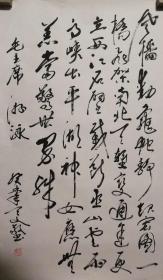 风樯动龟蛇静起宏图一
桥飞架南北天堑变通途更
立西江石壁截断巫山云雨
高峡出平湖神女应无
恙当惊世界殊
毛主席 游泳